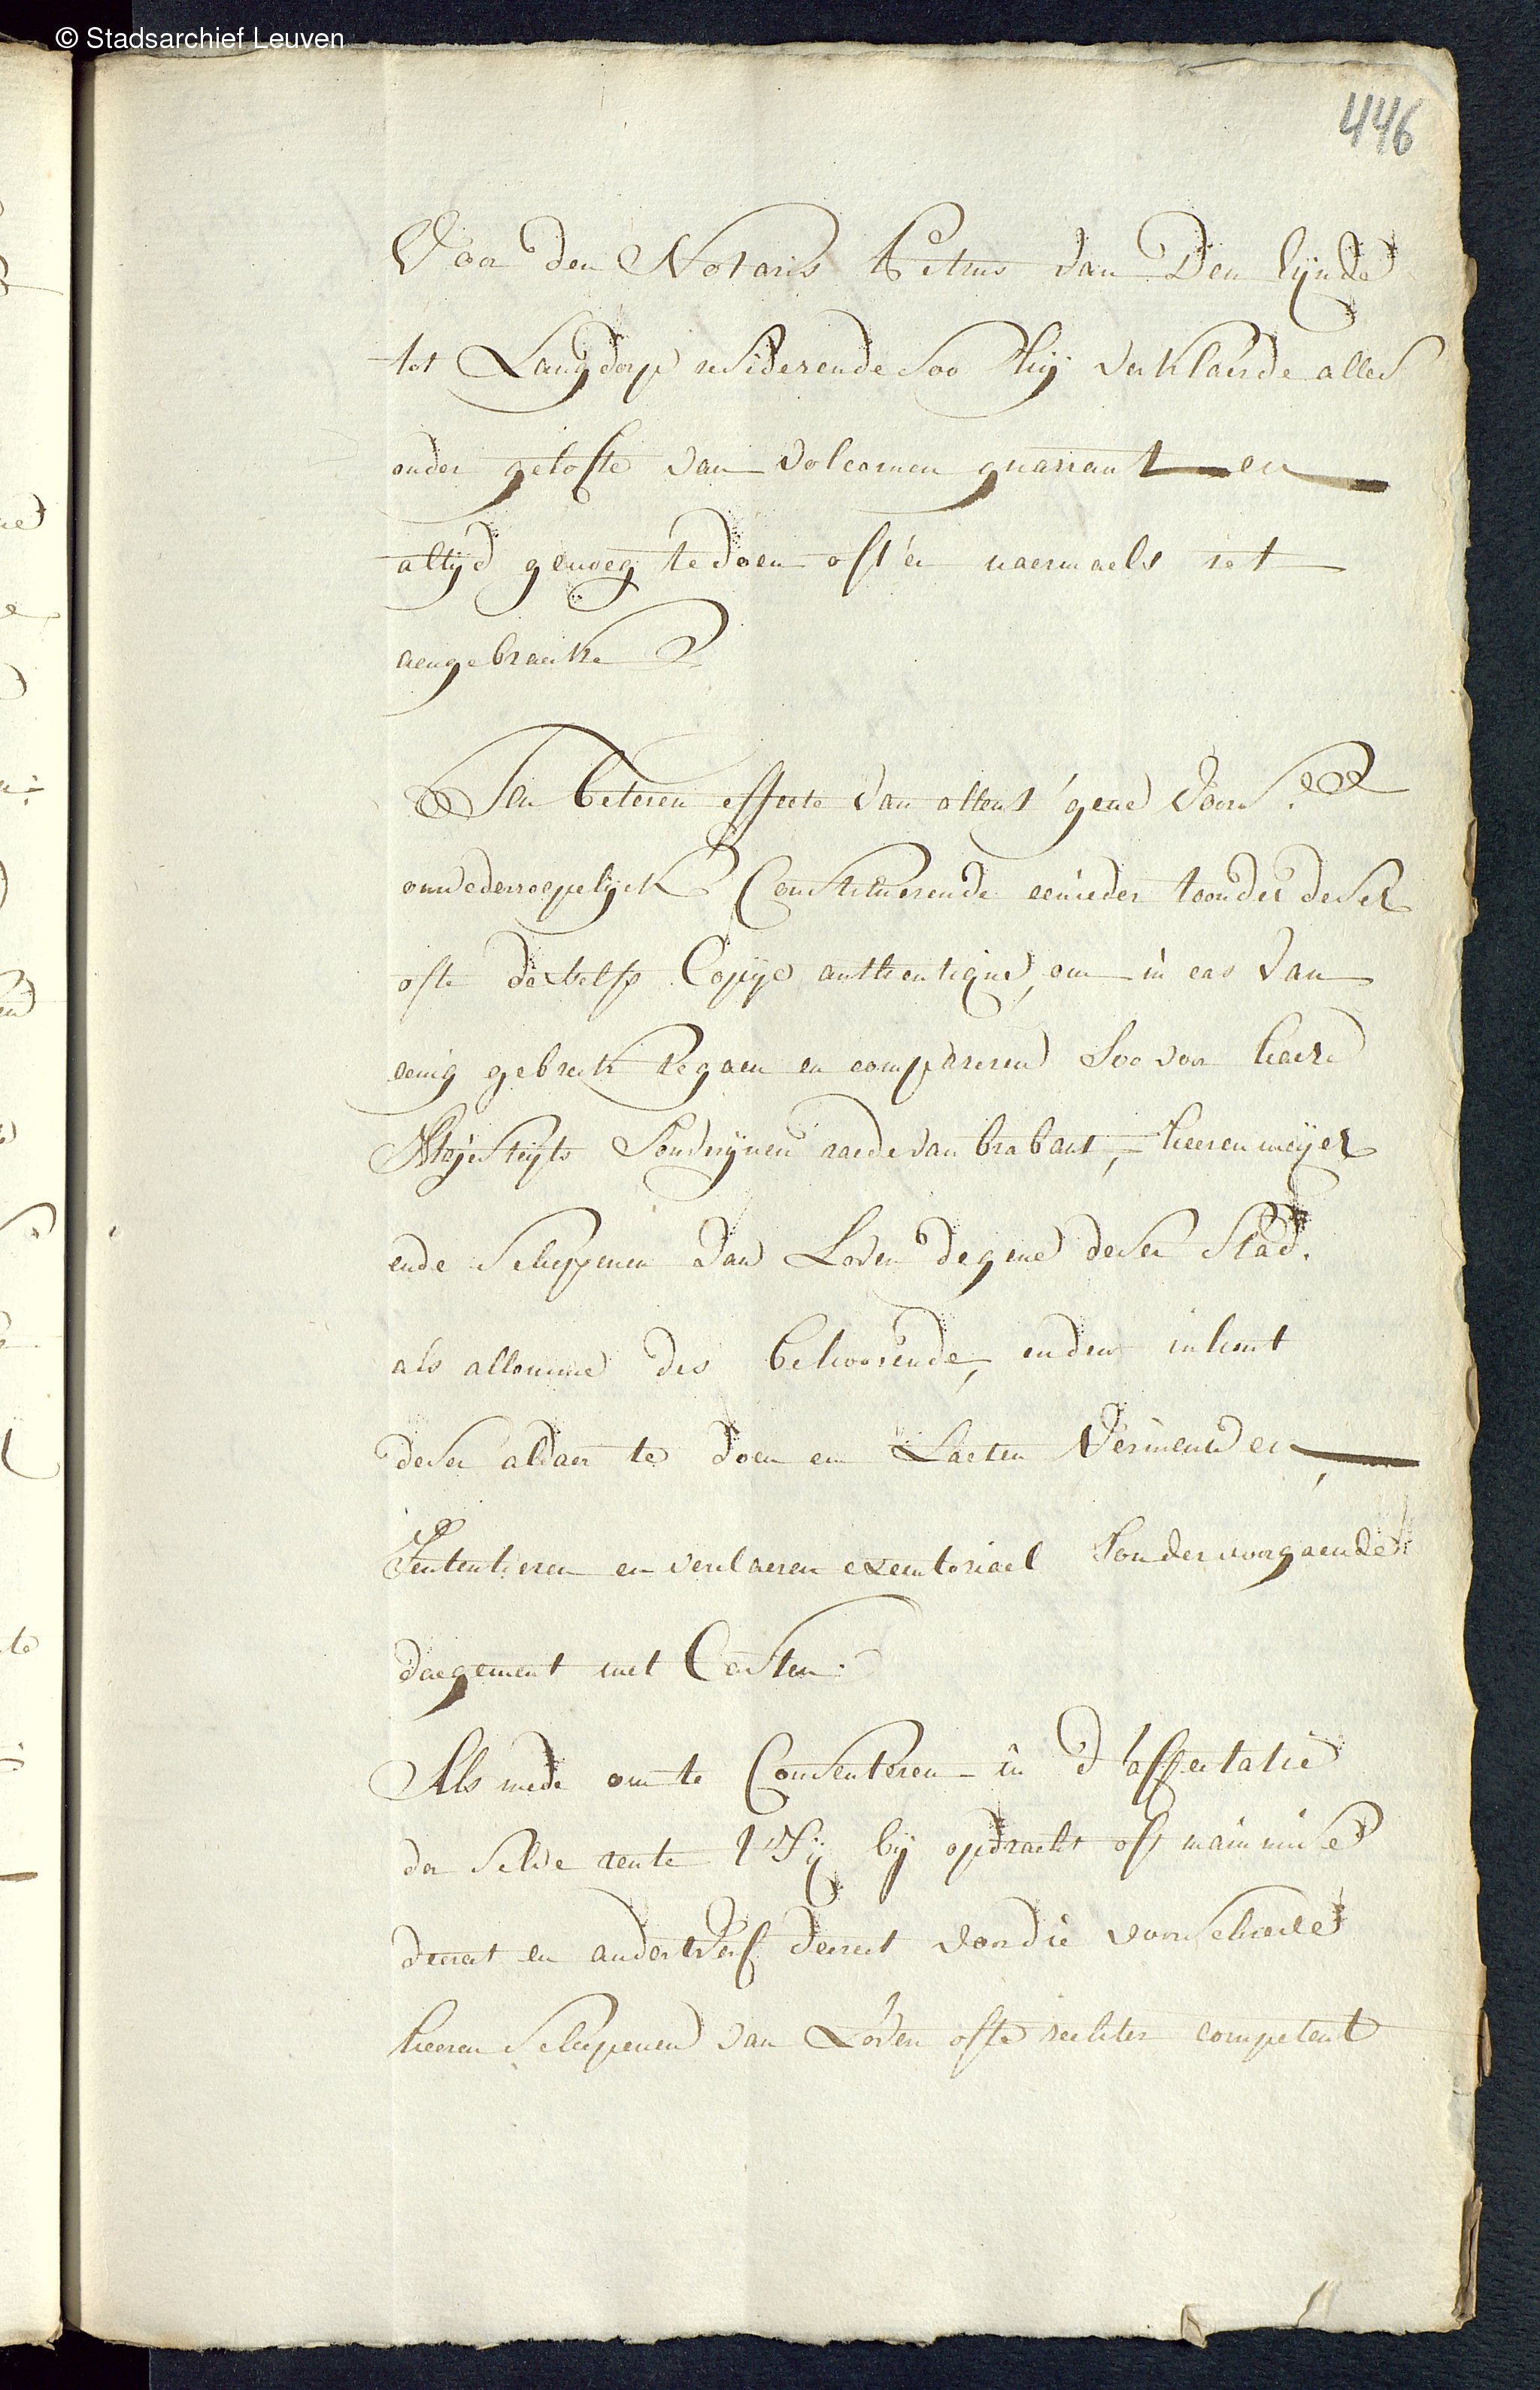 © Stadsarchief Leuven
446
Voor den Notaris Petrus van Den Eijnde
tot Langdorp residerende soo Hij verklaerde alles
onder gelofte van volcomen guarrant en
altijd genoeg te doen oft er naermaels iet
aengebraeke
Ten beteren effecte van allen 't gene voors.
onwederroepelijck Constituerende eenieder toonder deser
ofte des selfs Copije authentique, om in cas van
eenig gebreck te gaen en compareren soo voor haere
Majesteijts souvrijnen raede van brabant, heeren meijer
ende schepenen van Loven degene deser stad.
als allomme des behoorende, en den inhout
deser aldaer te doen en laeten vernieuwen
sententieren en verclaeren executoriael sonder voorgaende
daegement met Costen.
Als mede om te Consenteren in d'affectatie
der selve rente 't sij bij opdracht oft mainmise
decret en anderwerf decret voor die voorschreve
heeren schepenen van Loven ofte rechter competent